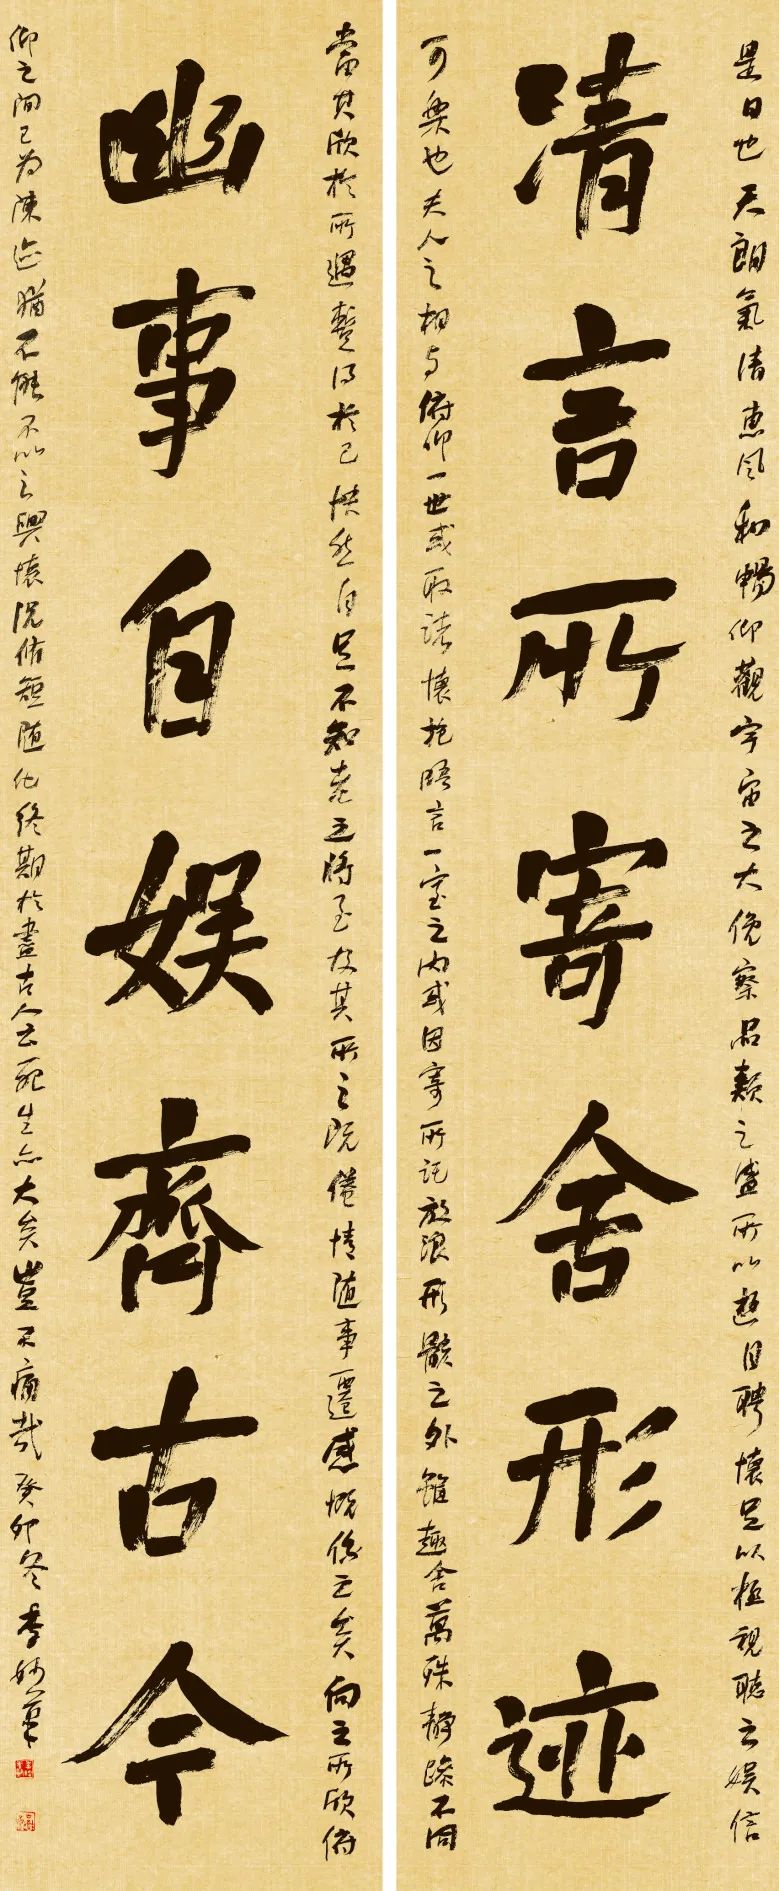 是日也天朗氣清惠風和暢仰觀宇宙之大俛察品類之盛所以遊目聘懷足以極視聽之娛信
清言所寄舍形迹
可樂也夫人之相与俯仰一世或取諸懷抱晤言一室之內或因寄所託放浪形骸之外雖趣舍萬殊靜躁不同
當其欣於所遇暫得於己快然自足不知老之將至及其所之既倦情随事遷感慨係之矣向之所欣俯
幽事自娛齊古今
仰之間已為陳迹猶不能不以之興懷況脩短随化終期於盡古人云死生亦大矣豈不痛哉癸卯冬李妙